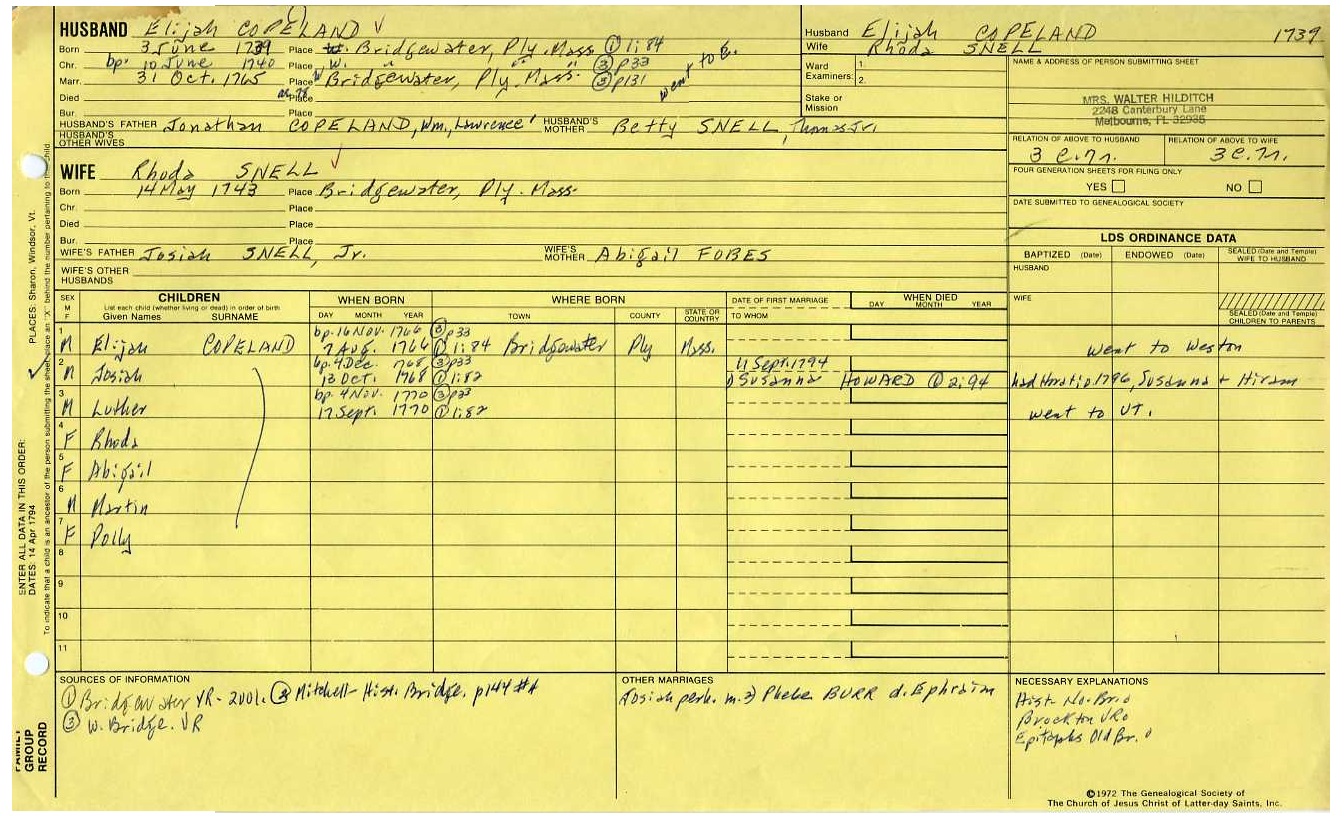 HUSBAND Elijah COPELAND
Born 3 June 1739 Place Bridgewater, Ply. Mass ① 1:84
Chr. bp. 10 June 1740 Place W. " " ③ p33
Marr. 31 Oct. 1765 Place W Bridgewater, Ply. Mass. ③ p131
went to E.
Died Place
Bur. Place
HUSBAND'S FATHER Jonathan COPELAND, Wm, Lawrence HUSBAND'S MOTHER Betty SNELL, Thomas Jr.
HUSBAND'S OTHER WIVES
Husband Elijah COPELAND 1739
Wife Rhoda SNELL
Ward 1.
Examiners: 2.
Stake or Mission
NAME & ADDRESS OF PERSON SUBMITTING SHEET
MRS. WALTER HILDITCH
2248 Canterbury Lane
Melbourne, FL 32935
RELATION OF ABOVE TO HUSBAND RELATION OF ABOVE TO WIFE
3 c.7r. 3 c.7r.
FOUR GENERATION SHEETS FOR FILING ONLY
YES NO
DATE SUBMITTED TO GENEALOGICAL SOCIETY
WIFE Rhoda SNELL
Born 14 May 1743 Place Bridgewater, Ply. Mass.
Chr. Place
Died Place
Bur. Place
WIFE'S FATHER Josiah SNELL, Jr. WIFE'S MOTHER Abigail FOBES
WIFE'S OTHER HUSBANDS
LDS ORDINANCE DATA
BAPTIZED (Date) ENDOWED (Date) SEALED (Date and Temple) WIFE TO HUSBAND
HUSBAND
WIFE
SEALED (Date and Temple) CHILDREN TO PARENTS
SEX M F
CHILDREN
List each child (whether living or dead) in order of birth
Given Names SURNAME
WHEN BORN
DAY MONTH YEAR
WHERE BORN
TOWN COUNTY STATE OR COUNTRY
DATE OF FIRST MARRIAGE
TO WHOM
WHEN DIED
DAY MONTH YEAR
1 bp. 16 Nov. 1766 ③ p33
M Elijah COPELAND 7 Aug. 1766 ① 1:84 Bridgewater Ply Mass. went to Weston
2 bp. 4 Dec. 1768 ③ p33 11 Sept. 1794
M Josiah 13 Oct. 1768 ① 1:82 Susanna HOWARD ① 2:94 had Horatio 1796, Susanna + Hiram
3 bp. 4 Nov. 1770 ③ p33
M Luther 17 Sept. 1770 ① 1:82 went to VT.
4
F Rhoda
5
F Abigail
6
M Martin
7
F Polly
8
9
10
11
SOURCES OF INFORMATION
① Bridgewater VR - 2001. ② Mitchell - Hist. Bridge. p144 #A
③ W. Bridge. VR
OTHER MARRIAGES
Josiah perh. m. 2) Phebe BURR d. Ephraim
NECESSARY EXPLANATIONS
Hist. No. Br.
Brockton VR
Epitaphs Old Br.
©1972 The Genealogical Society of
The Church of Jesus Christ of Latter-day Saints, Inc.
PLACES: Sharon, Windsor, Vt.
ENTER ALL DATA IN THIS ORDER:
DATES: 14 Apr 1794
To indicate that a child is an ancestor of the person submitting the sheet, place an "X" behind the number pertaining to the child.
FAMILY
GROUP
RECORD